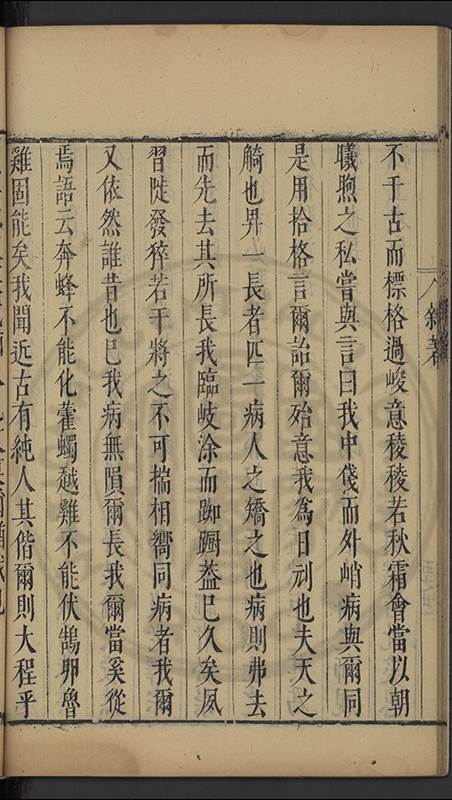 不干古而標格過峻意稜稜若秋霜會當以朝
曦煦之私嘗與言曰我中俴而外峭病與爾同
是用拾格言爾詒爾殆意我為日刓也夫天之
觭也畀一長者匹一病人之矯之也病則弗去
而先去其所長我臨岐涂而踟躕葢已久矣夙
習陡發猝若干將之不可揣相嚮同病者我爾
又依然誰昔也已我病無隕爾長我爾當奚從
焉語云奔蜂不能化藿蠋越雞不能伏鵠卵魯
雞固能矣我聞近古有純人其偕爾則大程乎